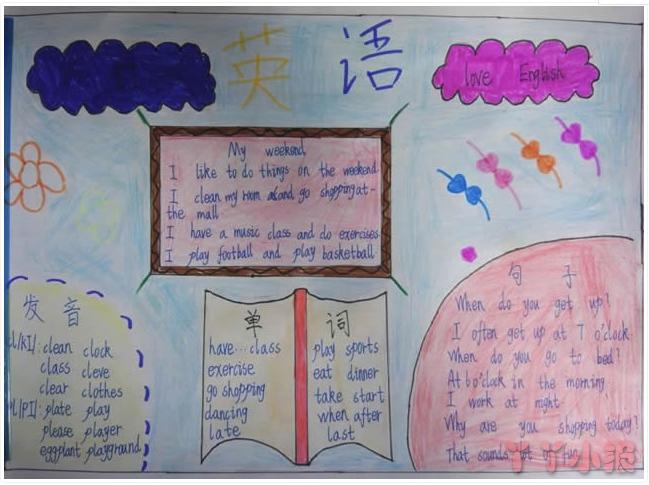 英语
love English
My weekend
I like to do things on the weekend
I clean my room and go shopping at
the mall
I have a music class and do exercises
I play football and play basketball
发音
cl/kI/: clean clock
class cleve
clear clothes
pl/pI/: plate play
please player
eggplant playground
单词
have...class
exercise
go shopping
dancing
late
play sports
eat dinner
take start
when after
last
句子
When do you get up?
I often get up at 7 o'clock
When do you go to bed?
At 6 o'clock in the morning
I work at night
Why are you shopping today?
That sounds lot of fun
丫丫小孩